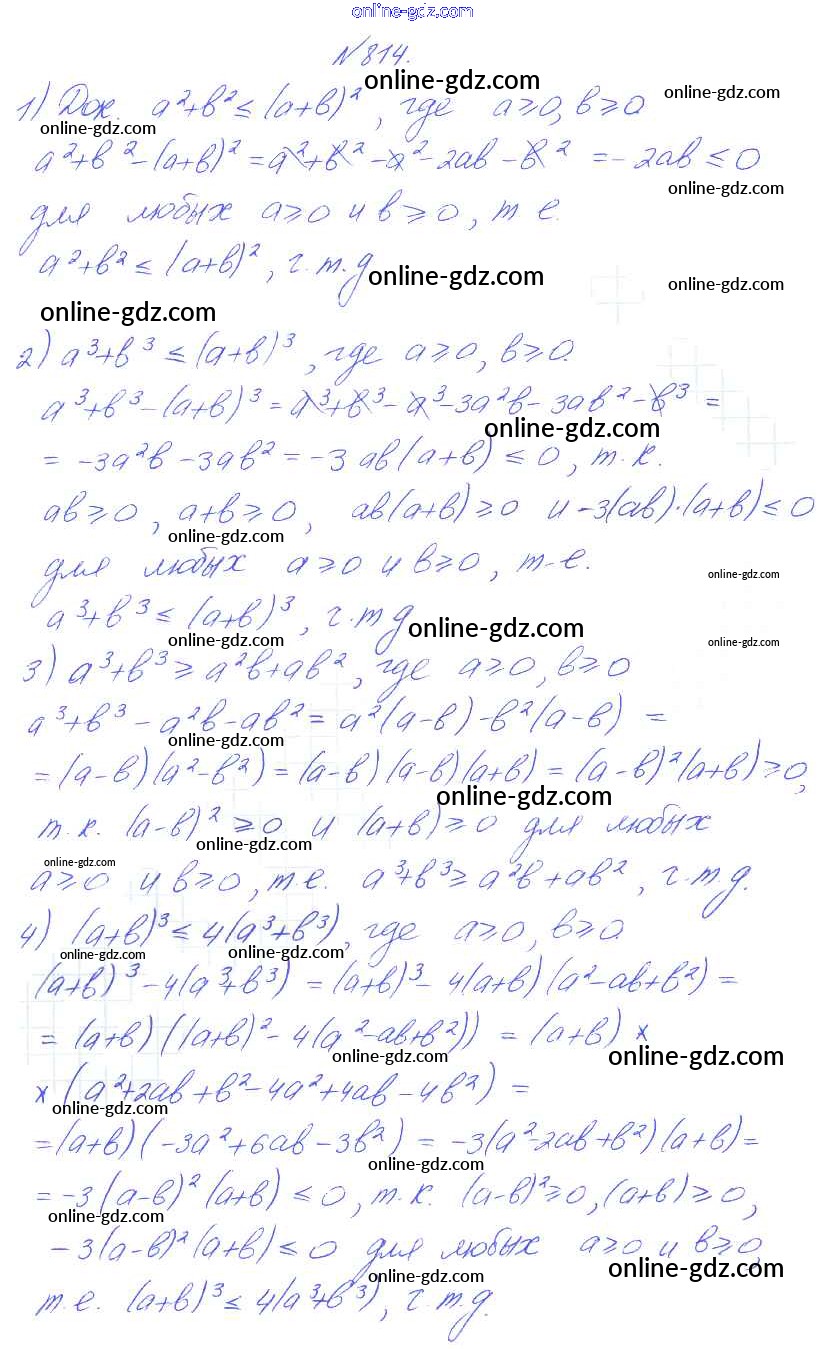 online-gdz.com
N 814.
1) Док. a²+b² ≤ (a+b)², где a≥0, b≥0
online-gdz.com
online-gdz.com
online-gdz.com
a²+b²-(a+b)² = a²+b²-a²-2ab-b² = -2ab ≤ 0
online-gdz.com
для любых a≥0 и b≥0, т е.
a²+b² ≤ (a+b)², ч.т.д
online-gdz.com
online-gdz.com
online-gdz.com
2) a³+b³ ≤ (a+b)³, где a≥0, b≥0.
a³+b³-(a+b)³ = a³+b³-a³-3a²b-3ab²-b³ =
online-gdz.com
= -3a²b-3ab² = -3ab(a+b) ≤ 0, т.к.
ab≥0, a+b≥0, ab(a+b)≥0 и -3(ab)·(a+b) ≤ 0
online-gdz.com
для любых a≥0 и b≥0, т-е.
online-gdz.com
a³+b³ ≤ (a+b)³, ч.тд
online-gdz.com
online-gdz.com
online-gdz.com
3) a³+b³ ≥ a²b+ab², где a≥0, b≥0
a³+b³-a²b-ab² = a²(a-b)-b²(a-b) =
online-gdz.com
= (a-b)(a²-b²) = (a-b)(a-b)(a+b) = (a-b)²(a+b)≥0,
online-gdz.com
т.к. (a-b)² ≥0 и (a+b)≥0 для любых
online-gdz.com
online-gdz.com
a≥0 и b≥0, т.е. a³+b³ ≥ a²b+ab², ч.т.д.
4) (a+b)³ ≤ 4(a³+b³), где a≥0, b≥0
online-gdz.com
online-gdz.com
(a+b)³-4(a³+b³) = (a+b)³-4(a+b)(a²-ab+b²) =
= (a+b)((a+b)²-4(a²-ab+b²)) = (a+b) ×
online-gdz.com
online-gdz.com
× (a²+2ab+b²-4a²+4ab-4b²) =
online-gdz.com
= (a+b)(-3a²+6ab-3b²) = -3(a²-2ab+b²)(a+b) =
online-gdz.com
= -3(a-b)²(a+b) ≤ 0, т.к. (a-b)²≥0, (a+b)≥0,
online-gdz.com
-3(a-b)²(a+b) ≤ 0 для любых a≥0 и b≥0,
online-gdz.com
online-gdz.com
т.е. (a+b)³ ≤ 4(a³+b³), ч.т.д.